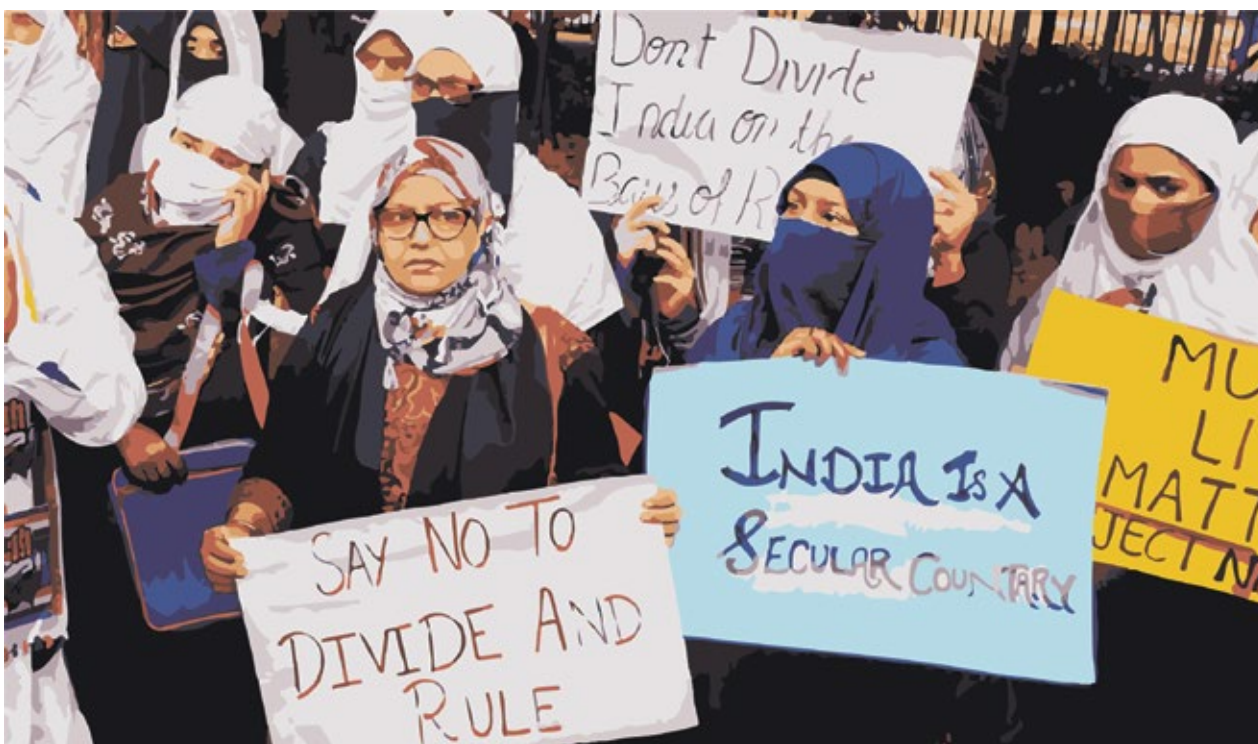 Dont Divide
India on the
Basis of R
SAY NO TO
DIVIDE AND
RULE
INDIA IS A
SECULAR COUNTARY
MU
LI
MATT
JECT N